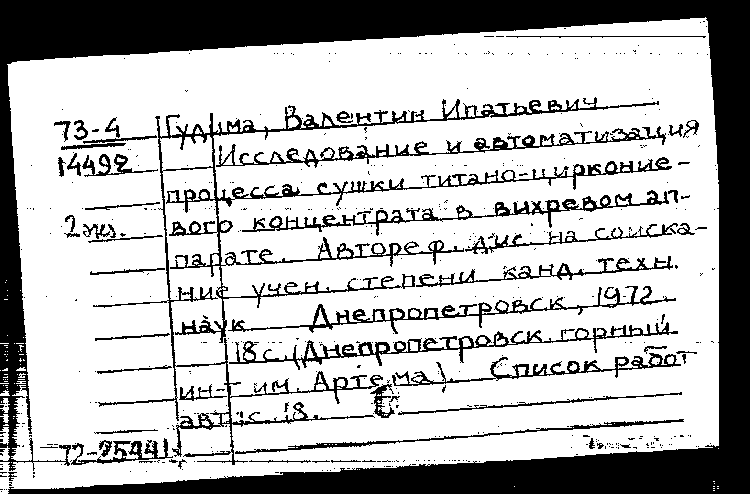 73-4 Гудима, Валентин Ипатьевич
14492 Исследование и автоматизация
процесса сушки титано-цирконие-
2 экз. вого концентрата в вихревом ап-
парате. Автореф. дис. на соиска-
ние учен. степени канд. техн.
наук Днепропетровск, 1972.
18 с. (Днепропетровск. горный
ин-т им. Артема). Список работ
авт: с. 18.
72-25441